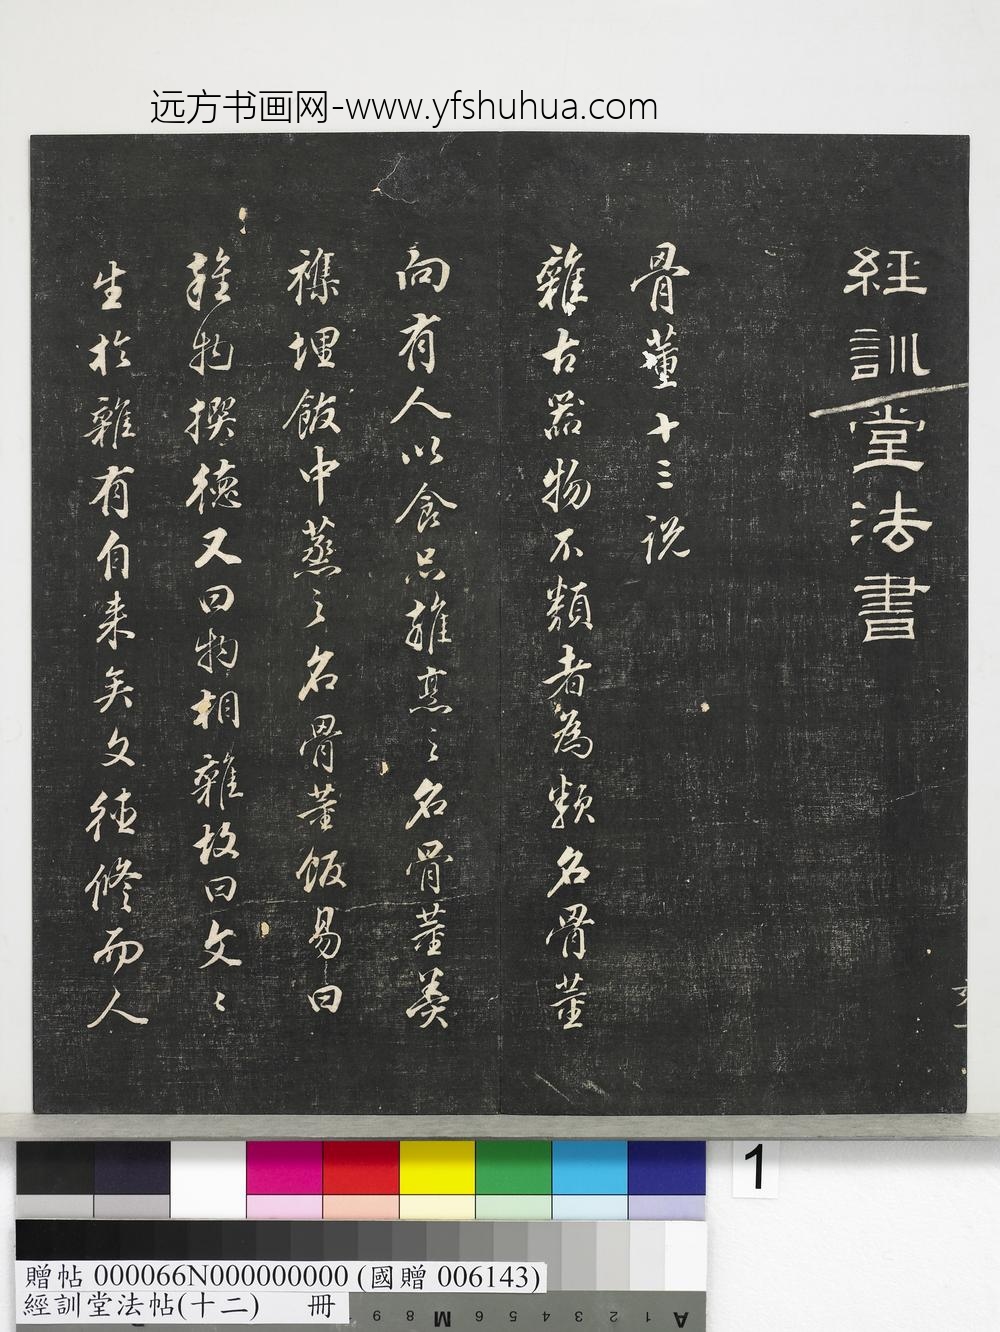 远方书画网-www.yfshuhua.com
經訓堂法書
骨董十三说
雜古器物不類者為類名骨董
向有人以食品雜烹之名骨董羹
襍埋飯中蒸之名骨董飯易曰
雜物撰德又曰物相雜故曰文文
生於雜有自来矣文德修而人
1
贈帖 000066N000000000 (國贈 006143)
經訓堂法帖(十二) 冊
9 8 M 6 5 4 3 2 1 A